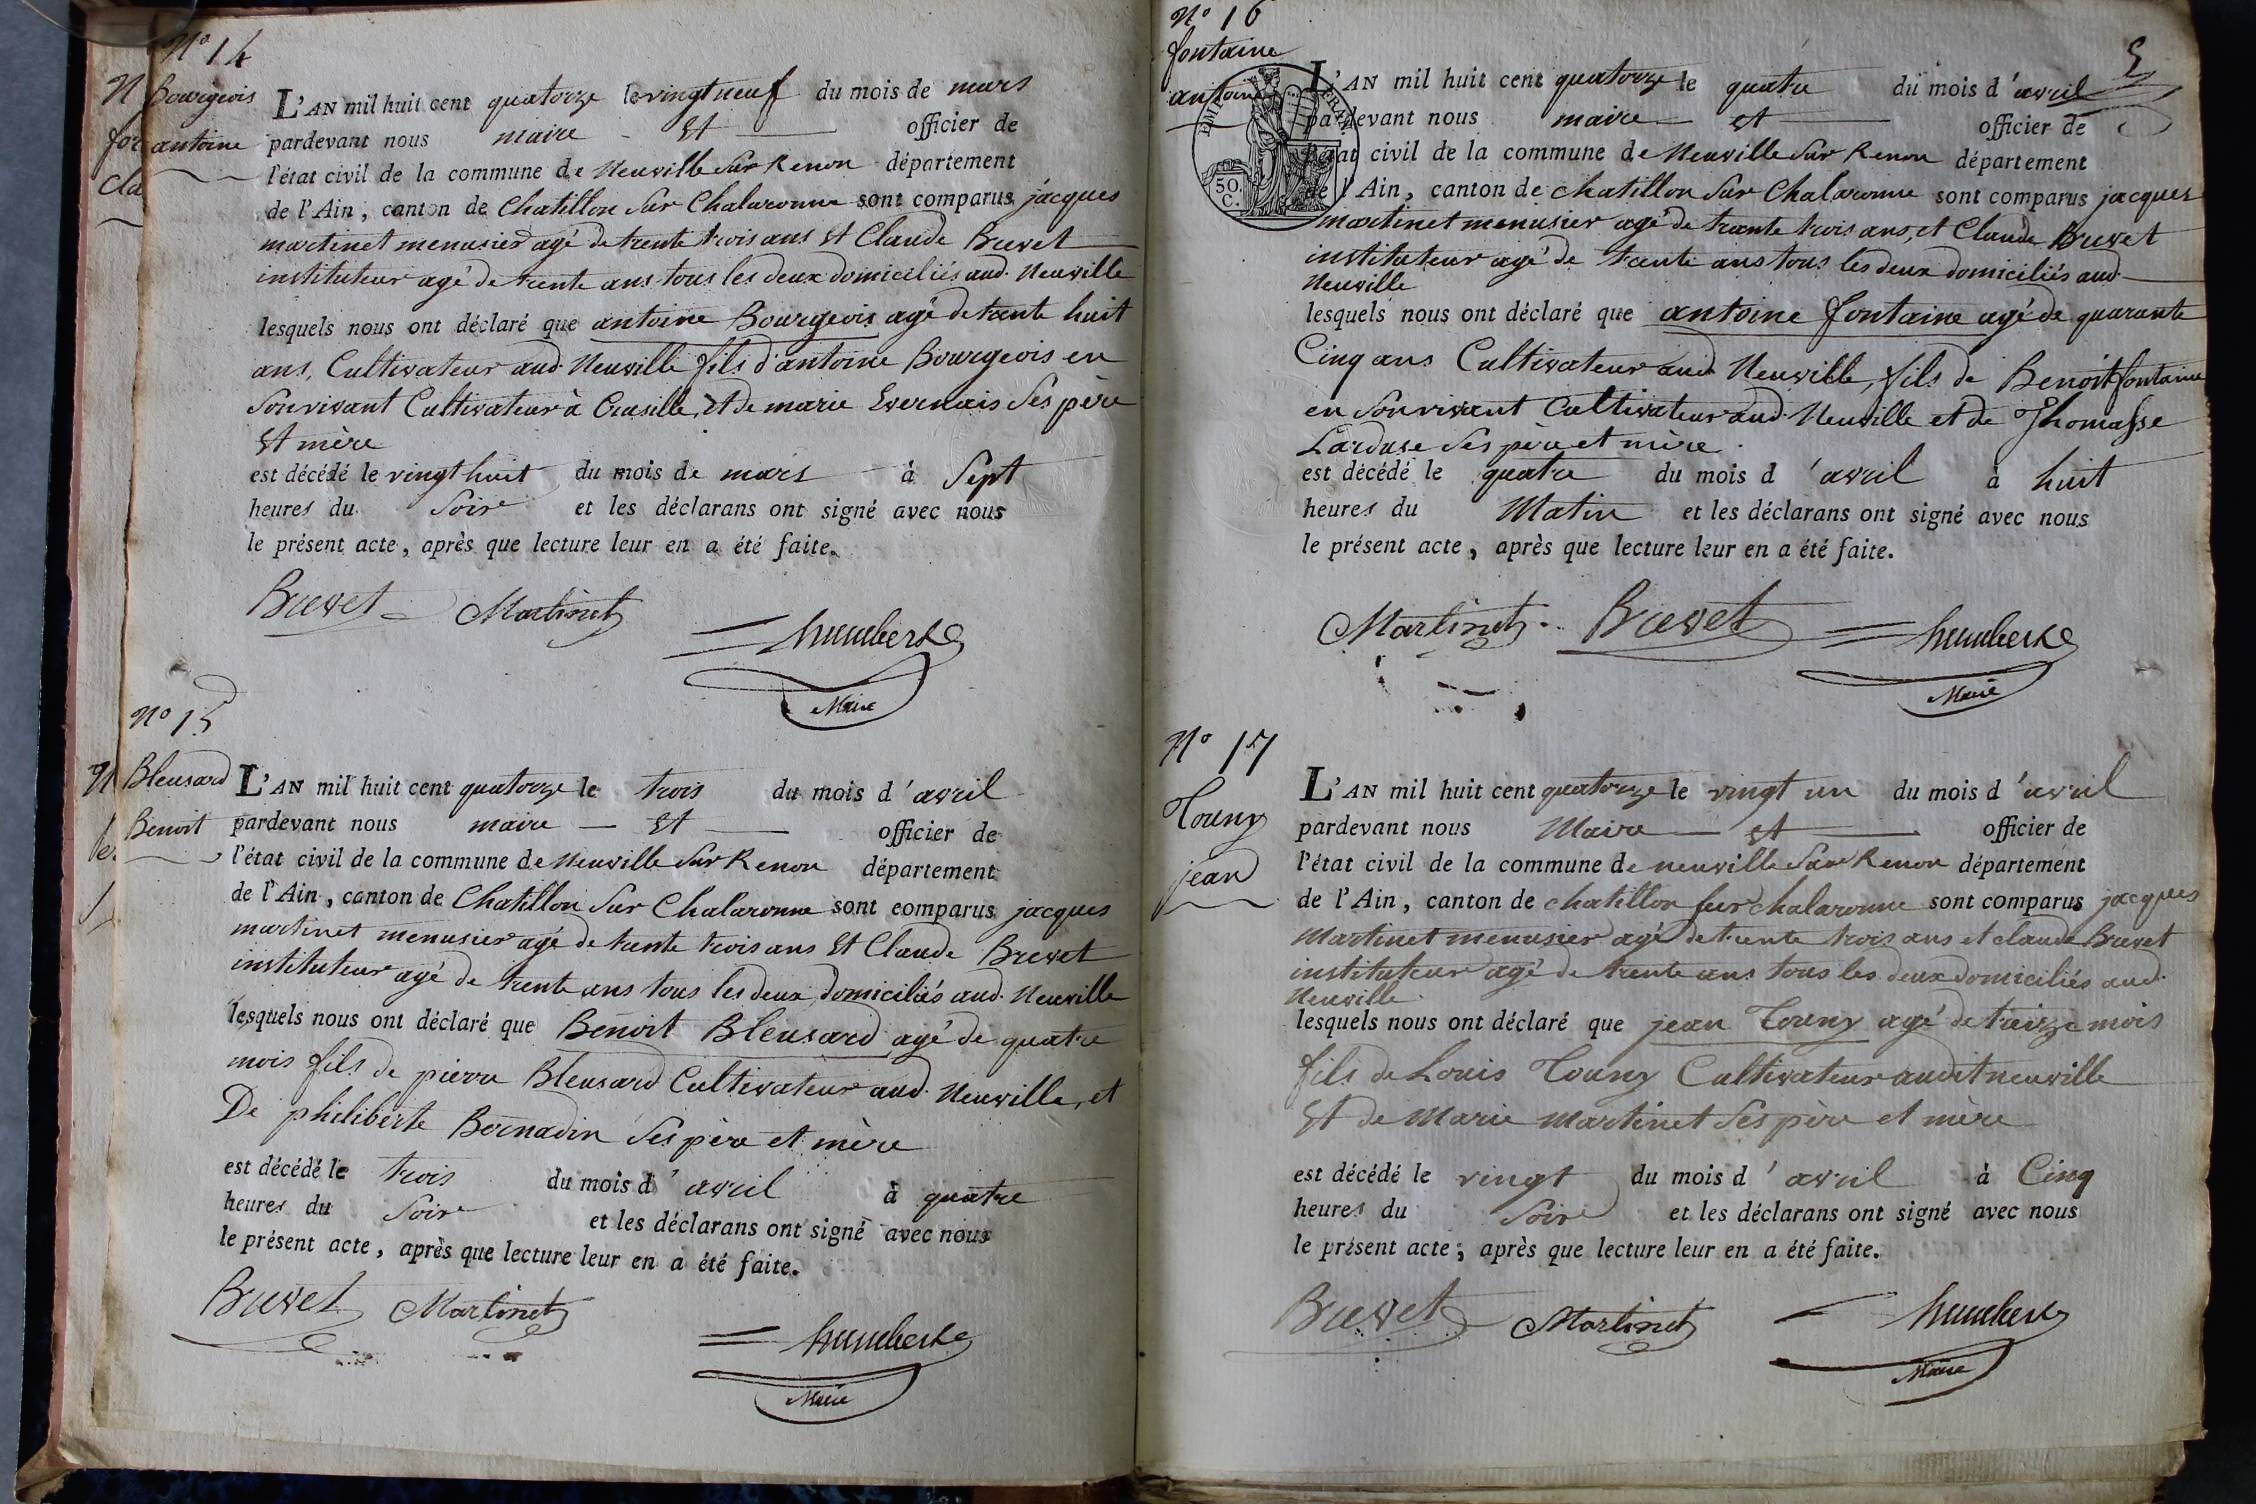 N° 14
Bourgeois
antoine
L'AN mil huit cent quatorze le vingt neuf du mois de mars
pardevant nous maire Et officier de
l'état civil de la commune de Neuville Sur Renon département
de l'Ain, canton de Chatillon Sur Chalaronne sont comparus jacques
martinet menusier agé de trente trois ans Et Claude Brevet
instituteur agé de trente ans tous les deux domiciliés aud. Neuville
lesquels nous ont déclaré que antoine Bourgeois agé de trente huit
ans, Cultivateur aud. Neuville fils d'antoine Bourgeois en
Son vivant Cultivateur à Crusille, et de marie Evernais Ses père
Et mère
est décédé le vingt huit du mois de mars à Sept
heures du Soir et les déclarans ont signé avec nous
le présent acte, après que lecture leur en a été faite.
Brevet Martinet
humbert
Maire
N° 15
Bleusard
Benoit
L'AN mil huit cent quatorze le trois du mois d'avril
pardevant nous maire Et officier de
l'état civil de la commune de Neuville Sur Renon département
de l'Ain, canton de Chatillon Sur Chalaronne sont comparus jacques
martinet menusier agé de trente trois ans Et Claude Brevet
instituteur agé de trente ans tous les deux domiciliés aud. Neuville
lesquels nous ont déclaré que Benoit Bleusard agé de quatre
mois fils de pierre Bleusard Cultivateur aud. Neuville, et
De philiberte Bernadin Ses père et mère
est décédé le trois du mois d'avril à quatre
heures du Soir et les déclarans ont signé avec nous
le présent acte, après que lecture leur en a été faite.
Brevet Martinet
humbert
Maire
N° 16
fontaine
antoine
5
50.
C.
L'AN mil huit cent quatorze le quatre du mois d'avril
pardevant nous maire et officier de
l'état civil de la commune de Neuville Sur Renon département
de l'Ain, canton de Chatillon Sur Chalaronne sont comparus jacques
martinet menusier agé de trente trois ans, et Claude Brevet
instituteur agé de trente ans tous les deux domiciliés aud.
Neuville
lesquels nous ont déclaré que antoine fontaine agé de quarante
Cinq ans Cultivateur aud Neuville, fils de Benoit fontaine
en Son vivant Cultivateur aud. Neuville et de Thomasse
Larduse Ses père et mère.
est décédé le quatre du mois d'avril à huit
heures du Matin et les déclarans ont signé avec nous
le présent acte, après que lecture leur en a été faite.
Martinet Brevet
humbert
Maire
N° 17
Touny
jean
L'AN mil huit cent quatorze le vingt un du mois d'avril
pardevant nous Maire et officier de
l'état civil de la commune de neuville Sur Renon département
de l'Ain, canton de chatillon sur chalaronne sont comparus jacques
Martinet menusier agé de trente trois ans et claude Brevet
instituteur agé de trente ans tous les deux domiciliés aud.
Neuville.
lesquels nous ont déclaré que jean Touny agé de treize mois
fils de Louis Touny Cultivateur audit neuville
Et de Marie Martinet Ses père et mère
est décédé le vingt du mois d'avril à Cinq
heures du Soir et les déclarans ont signé avec nous
le présent acte, après que lecture leur en a été faite.
Brevet Martinet
humbert
Maire